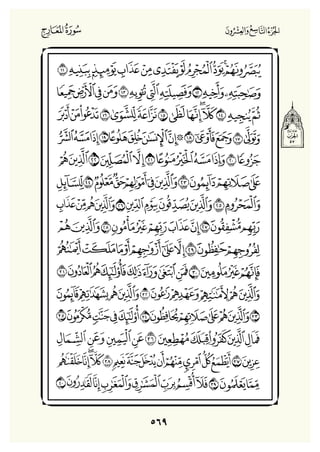 الجُزْءُ التَّاسِعُ وَالعِشْرُونَ
سُورَةُ المَعَارِجِ
يُبَصَّرُونَهُمْ ۚ يَوَدُّ ٱلْمُجْرِمُ لَوْ يَفْتَدِى مِنْ عَذَابِ يَوْمِئِذٍۭ بِبَنِيهِ ١١
وَصَٰحِبَتِهِۦ وَأَخِيهِ ١٢ وَفَصِيلَتِهِ ٱلَّتِى تُـْٔوِيهِ ١٣ وَمَن فِى ٱلْأَرْضِ جَمِيعًا
ثُمَّ يُنجِيهِ ١٤ كَلَّآ ۖ إِنَّهَا لَظَىٰ ١٥ نَزَّاعَةً لِّلشَّوَىٰ ١٦ تَدْعُوا۟ مَنْ أَدْبَرَ
وَتَوَلَّىٰ ١٧ وَجَمَعَ فَأَوْعَىٰٓ ١٨ ۞ إِنَّ ٱلْإِنسَٰنَ خُلِقَ هَلُوعًا ١٩ إِذَا مَسَّهُ ٱلشَّرُّ
جَزُوعًا ٢٠ وَإِذَا مَسَّهُ ٱلْخَيْرُ مَنُوعًا ٢١ إِلَّا ٱلْمُصَلِّينَ ٢٢ ٱلَّذِينَ هُمْ
عَلَىٰ صَلَاتِهِمْ دَآئِمُونَ ٢٣ وَٱلَّذِينَ فِىٓ أَمْوَٰلِهِمْ حَقٌّ مَّعْلُومٌ ٢٤ لِّلسَّآئِلِ
وَٱلْمَحْرُومِ ٢٥ وَٱلَّذِينَ يُصَدِّقُونَ بِيَوْمِ ٱلدِّينِ ٢٦ وَٱلَّذِينَ هُم مِّنْ عَذَابِ
رَبِّهِم مُّشْفِقُونَ ٢٧ إِنَّ عَذَابَ رَبِّهِمْ غَيْرُ مَأْمُونٍ ٢٨ وَٱلَّذِينَ هُمْ
لِفُرُوجِهِمْ حَٰفِظُونَ ٢٩ إِلَّا عَلَىٰٓ أَزْوَٰجِهِمْ أَوْ مَا مَلَكَتْ أَيْمَٰنُهُمْ
فَإِنَّهُمْ غَيْرُ مَلُومِينَ ٣٠ فَمَنِ ٱبْتَغَىٰ وَرَآءَ ذَٰلِكَ فَأُو۟لَٰٓئِكَ هُمُ ٱلْعَادُونَ ٣١
وَٱلَّذِينَ هُمْ لِأَمَٰنَٰتِهِمْ وَعَهْدِهِمْ رَٰعُونَ ٣٢ وَٱلَّذِينَ هُم بِشَهَٰدَٰتِهِمْ قَآئِمُونَ ٣٣
وَٱلَّذِينَ هُمْ عَلَىٰ صَلَاتِهِمْ يُحَافِظُونَ ٣٤ أُو۟لَٰٓئِكَ فِى جَنَّٰتٍ مُّكْرَمُونَ ٣٥
فَمَالِ ٱلَّذِينَ كَفَرُوا۟ قِبَلَكَ مُهْطِعِينَ ٣٦ عَنِ ٱلْيَمِينِ وَعَنِ ٱلشِّمَالِ
عِزِينَ ٣٧ أَيَطْمَعُ كُلُّ ٱمْرِئٍ مِّنْهُمْ أَن يُدْخَلَ جَنَّةَ نَعِيمٍ ٣٨ كَلَّآ ۖ إِنَّا خَلَقْنَٰهُم
مِّمَّا يَعْلَمُونَ ٣٩ فَلَآ أُقْسِمُ بِرَبِّ ٱلْمَشَٰرِقِ وَٱلْمَغَٰرِبِ إِنَّا لَقَٰدِرُونَ ٤٠
٥٦٩